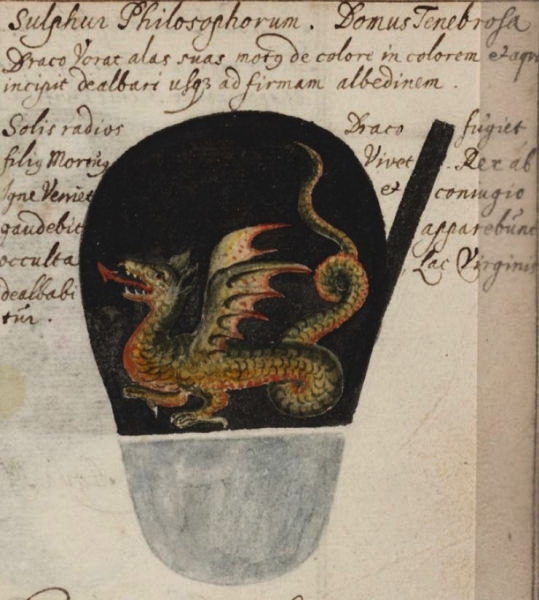 Sulphur Philosophorum. Domus Tenebrosa
Draco Vorat alas suas motq de colore in colorem et aqu
incipit dealbari usq3 ad firmam albedinem.
Solis radios Draco fugiet
filiq Moreng Vivet. Rex ab
Igne Veniet et coniugio
gaudebit apparebunt
occulta Lac Virginis
dealbabi
tur.